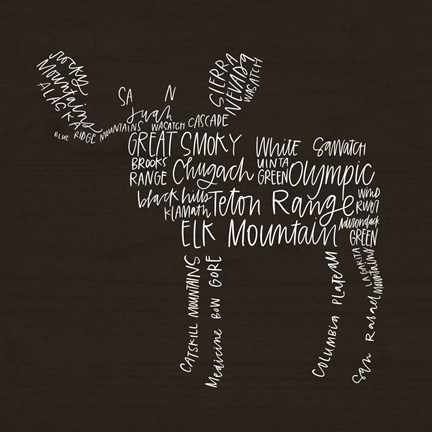 Rocky
Mountains
ALASKA
SIERRA
NEVADA
WASATCH
SA N
Juah
BLUE RIDGE MOUNTAINS WASATCH CASCADE
GREAT SMOKY
White Sawatch
BROOKS
RANGE
Chugach
UINTA
GREEN
Olympic
black hills
KlaMath
Teton Range
WIND
RIVER
Adirondack
ELK Mountain
GREEN
CATSKILL MOUNTAINS
Medicine BOW GORE
COLUMBIA PLATEAU
LA GARITA
San Rafael Mountains